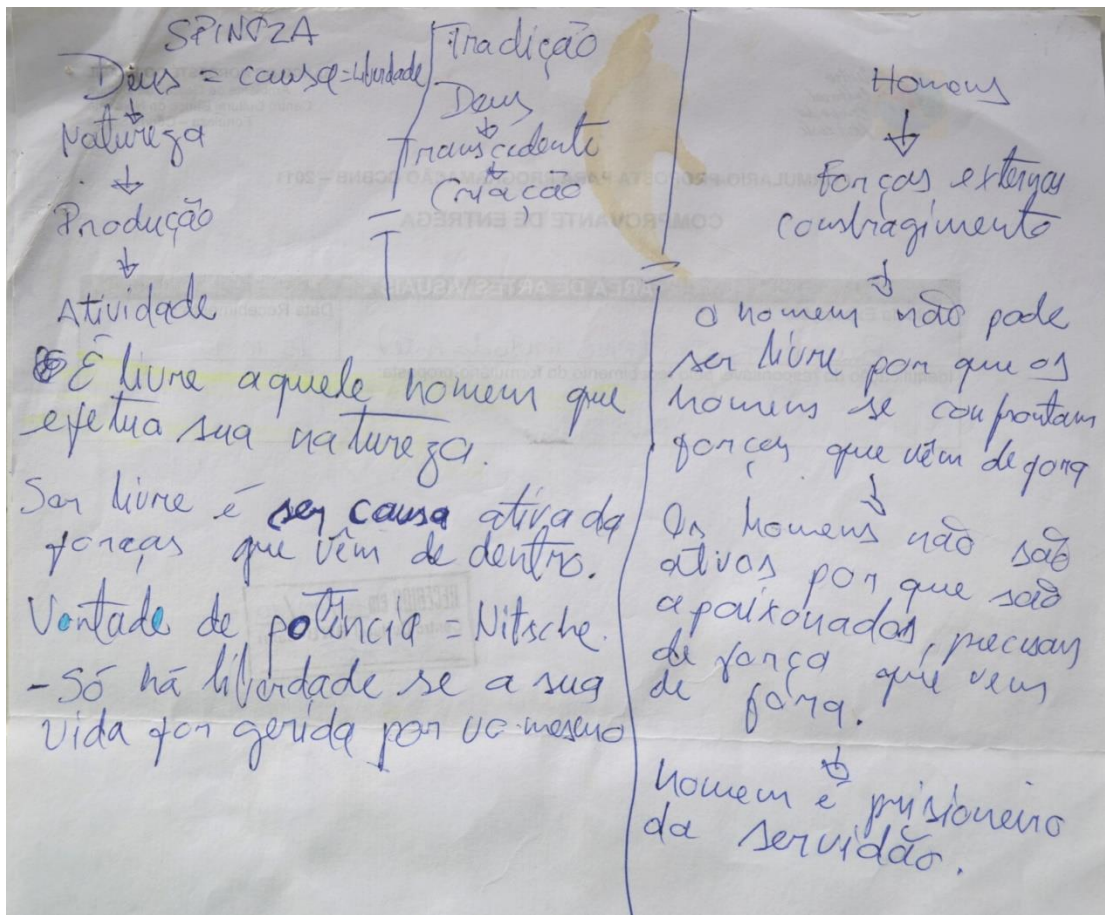 SPINOZA
Deus = causa = Liberdade
↓
Natureza
↓
Produção
↓
Atividade
Tradição
Deus
↓
Transcedente
↓
Criação
É livre aquele homem que
efetua sua natureza.
Ser livre é ser causa ativa da
forças que vêm de dentro.
Vontade de potência = Nitsche.
- Só há liberdade se a sua
vida for gerida por vc mesmo
Homens
↓
Forças externas
constragimento
↓
O homem não pode
ser livre por que os
homens se confrontam
forças que vêm de fora
↓
Os homens não são
ativos por que são
apaixonados, precisam
de força que vem
de fora.
↓
homem é prisioneiro
da servidão.
FORMULÁRIO PROPOSTA PARA PROGRAMAÇÃO CCBNB – 2011
COMPROVANTE DE ENTREGA
ÁREA DE ARTES VISUAIS